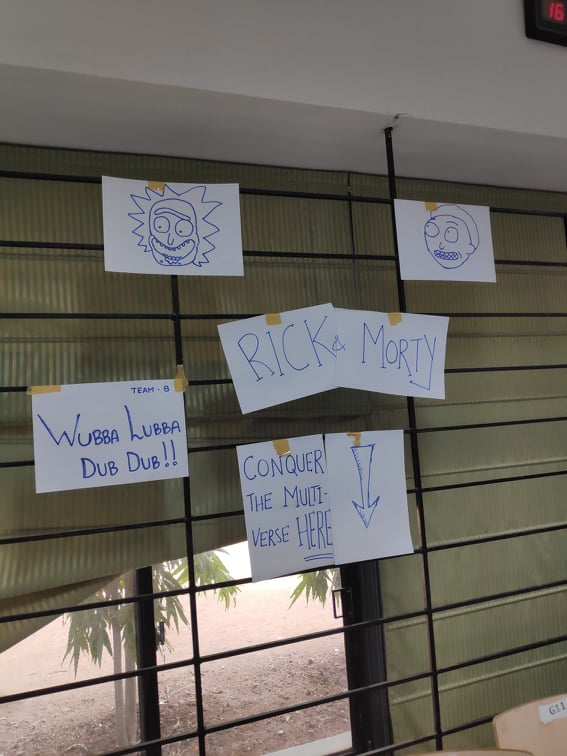 16
RICK & MORTY
TEAM - 8
WUBBA LUBBA
DUB DUB!!
CONQUER
THE MULTI-
VERSE HERE
G11